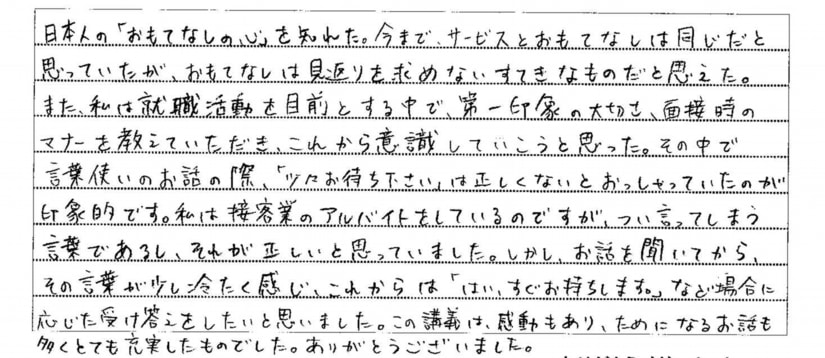 日本人の「おもてなしの心」を知れた。今まで、サービスとおもてなしは同じだと
思っていたが、おもてなしは見返りを求めないすてきなものだと思えた。
また、私は就職活動を目前とする中で、第一印象の大切さ、面接時の
マナーを教えていただき、これから意識していこうと思った。その中で
言葉使いのお話の際、「少々お待ち下さい」は正しくないとおっしゃっていたのが
印象的です。私は接客業のアルバイトをしているのですが、つい言ってしまう
言葉であるし、それが正しいと思っていました。しかし、お話を聞いてから、
その言葉が少し冷たく感じ、これからは「はい、すぐお持ちします。」など場合に
応じた受け答えをしたいと思いました。この講義は、感動もあり、ためになるお話も
多くとても充実したものでした。ありがとうございました。